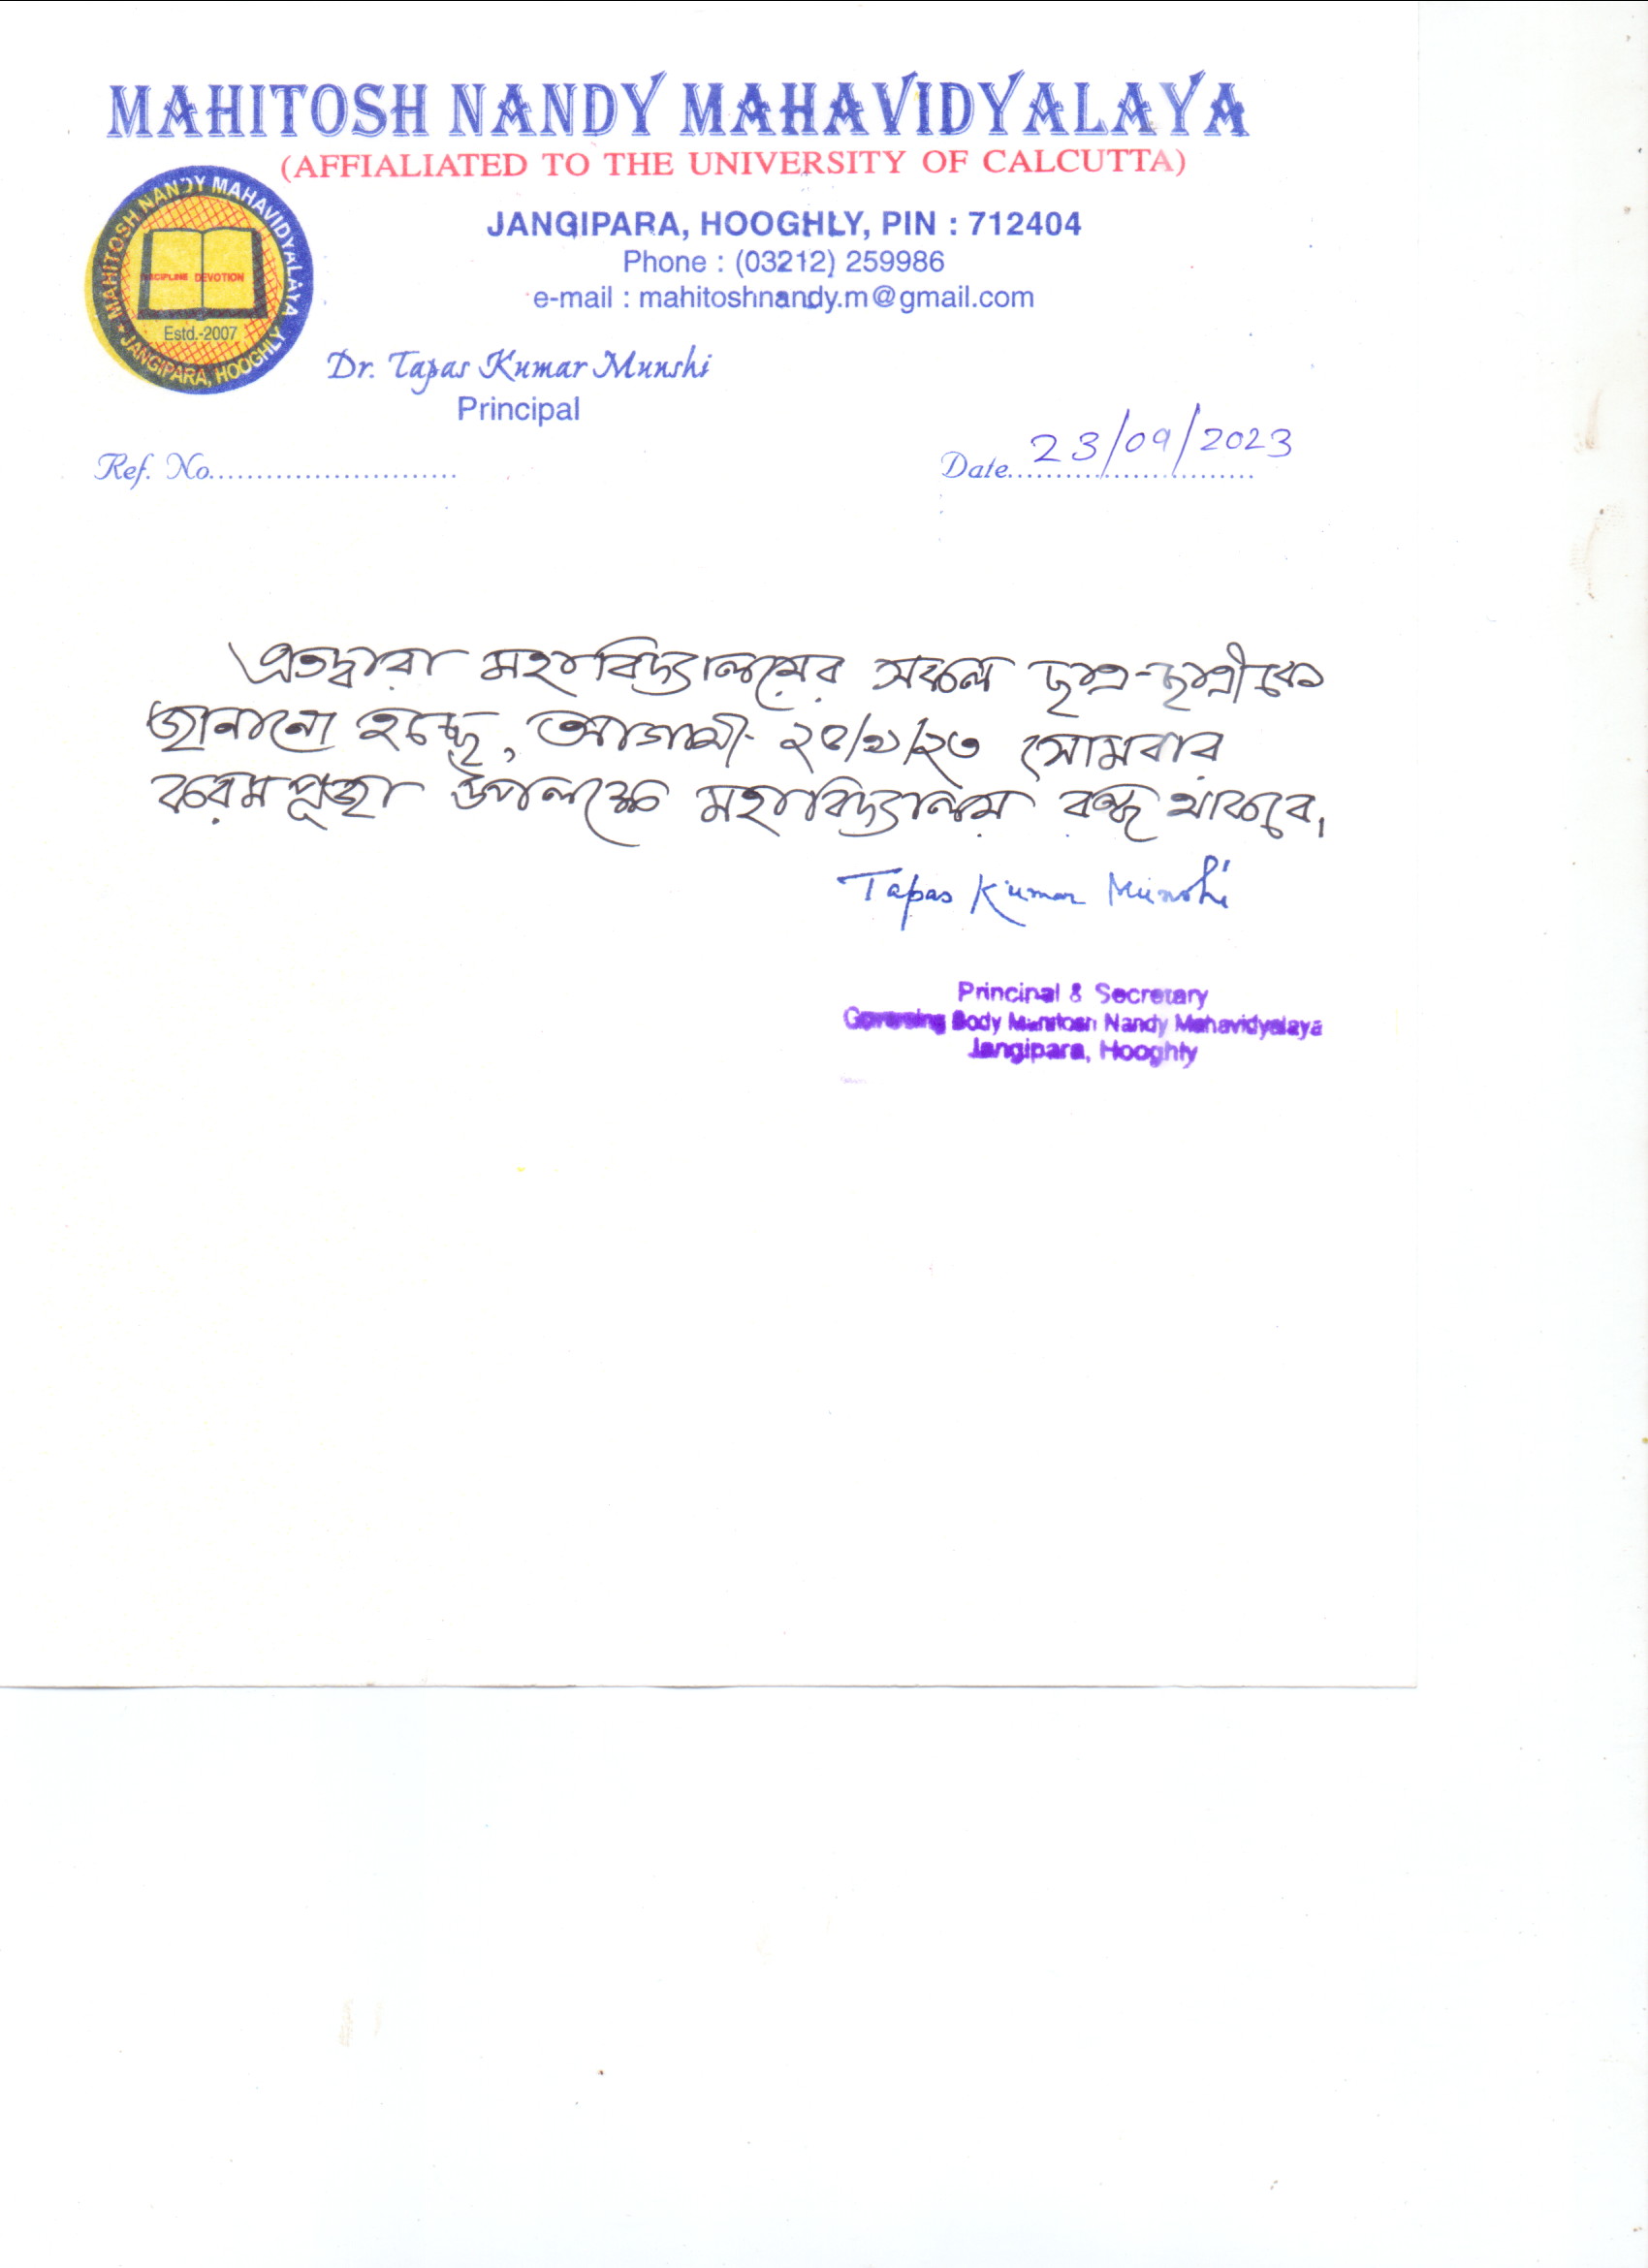 MAHITOSH NANDY MAHAVIDYALAYA
(AFFIALIATED TO THE UNIVERSITY OF CALCUTTA)
MAHITOSH NANDY MAHAVIDYALAYA
DISCIPLINE DEVOTION
Estd.-2007
JANGIPARA, HOOGHLY
JANGIPARA, HOOGHLY, PIN : 712404
Phone : (03212) 259986
e-mail : mahitoshnandy.m@gmail.com
Dr. Tapas Kumar Munshi
Principal
Ref. No..........................
Date.......................... 23/09/2023
এতদ্বারা মহাবিদ্যালয়ের সকল ছাত্র-ছাত্রীকে
জানানো হচ্ছে, আগামী ২৫/৯/২৩ সোমবার
করম পূজা উপলক্ষে মহাবিদ্যালয় বন্ধ থাকবে।
Tapas Kumar Munshi
Principal & Secretary
Governing Body Mahitosh Nandy Mahavidyalaya
Jangipara, Hooghly